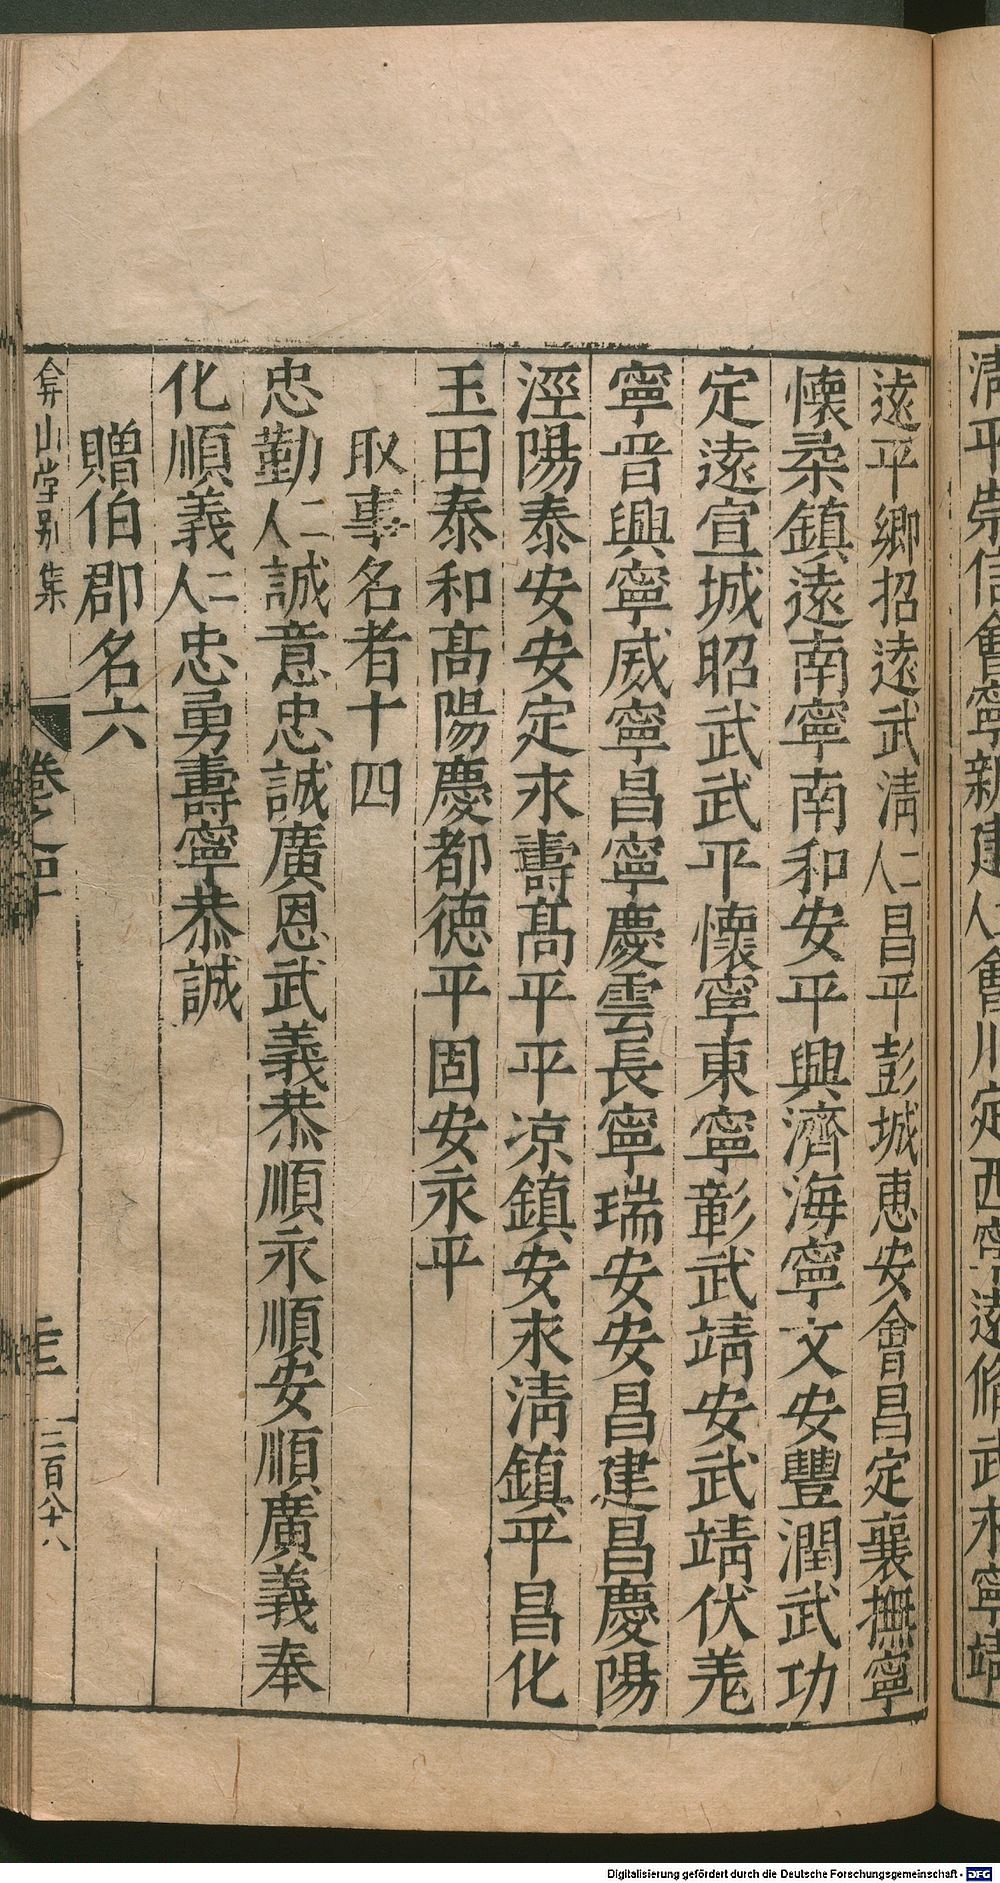 清平崇信會寧新建二人會川定西寧遠脩武永寧靖
遠平鄉招遠武清二人昌平彭城惠安會昌定襄撫寧
懷柔鎮遠南寧南和安平興濟海寧文安豐潤武功
定遠宣城昭武武平懷寧東寧彰武靖安武靖伏羌
寧晋興寧威寧昌寧慶雲長寧瑞安安昌建昌慶陽
涇陽泰安安定永壽高平平凉鎮安永清鎮平昌化
玉田泰和高陽慶都德平固安永平
取事名者十四
忠勤二人誠意忠誠廣恩武義恭順永順安順廣義奉
化順義二人忠勇壽寧恭誠
贈伯郡名六
弇山堂别集
卷之四十
三百八十八
Digitalisierung gefördert durch die Deutsche Forschungsgemeinschaft - DFG